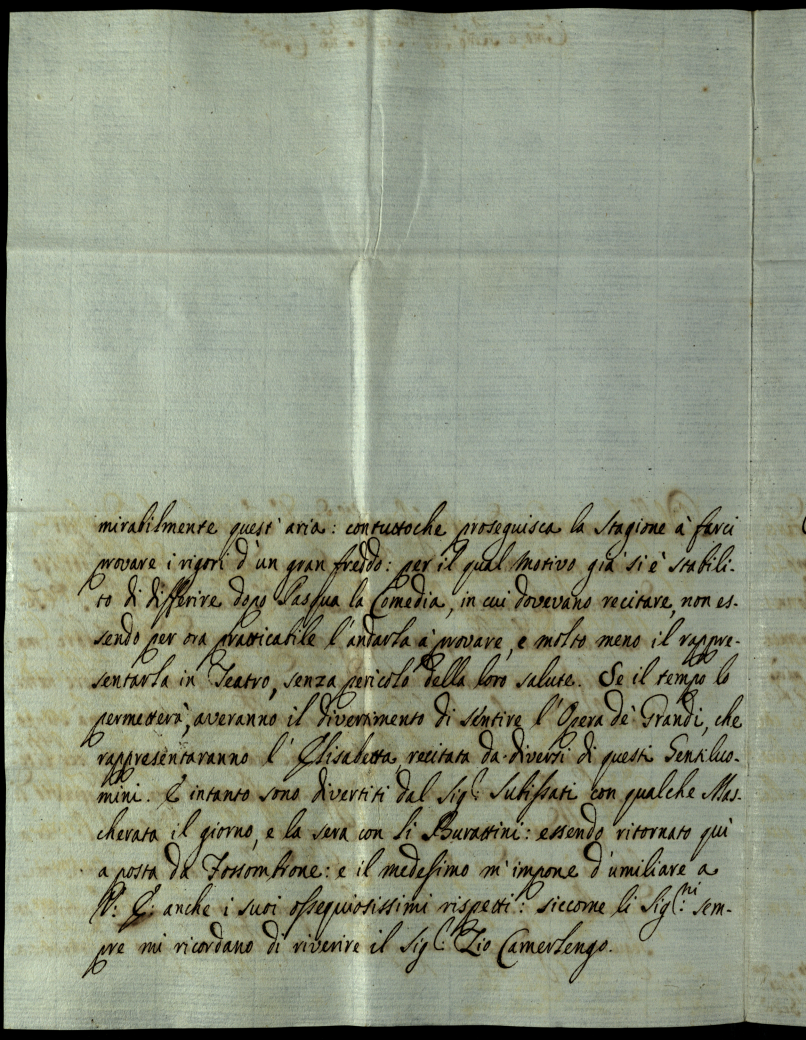 mirabilmente quest' aria: contuttoche proseguisca la stagione à farci
provare i rigori d'un gran freddo: per il qual motivo già si è stabili-
to di differire dopo Pasqua la Comedia, in cui dovevano recitare, non es-
sendo per ora pratticabile l'andarla à provare, e molto meno il rappre-
sentarla in Teatro, senza pericolo della loro salute. Se il tempo lo
permetterà, averanno il divertimento di sentire l'Opera de' Grandi, che
rappresentaranno l'Elisabetta recitata da diversi di questi Gentiluo-
mini. E intanto sono divertiti dal Sig.r Sutissati con qualche Mas-
cherata il giorno, e la sera con li Burattini: essendo ritornato quì
a posta da Fossombrone: e il medesimo m'impone d'umiliare a
V: E: anche i suoi ossequiosissimi rispetti: siccome li Sig.ri sem-
pre mi ricordano di riverire il Sig.r Zio Camerlengo.